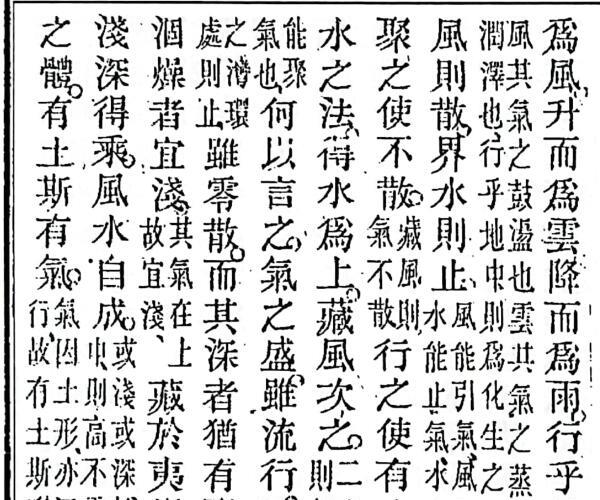 爲風升而爲雲降而爲雨行乎
風其氣之鼓盪也雲其氣之蒸
潤澤也行乎地中則爲化生之
風則散界水則止風能引氣風
水能止氣水
聚之使不散藏風則
氣不散行之使有
水之法得水爲上藏風次之二
則
能聚
氣也何以言之氣之盛雖流行
之灣環
處則止雖零散而其深者猶有
涸燥者宜淺其氣在上
故宜淺藏於夷
淺深得乘風水自成或淺或深
中則高不
之體有土斯有氣氣因土形亦
行故有土斯